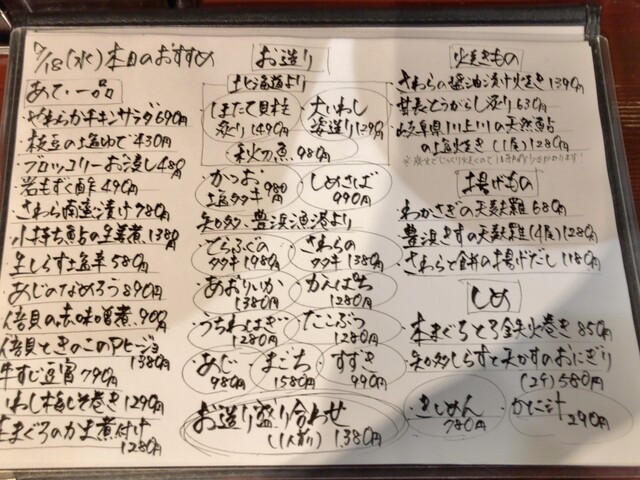 7/18(水)本日のおすすめ
あて・一品
やわらかチキンサラダ690円
枝豆の塩ゆで430円
ブロッコリーお浸し480円
岩もずく酢490円
さわら南蛮漬け780円
小持ち鮎の生姜煮1380円
生しらす塩辛580円
あじのなめろう890円
倍貝の赤味噌煮900円
倍貝ときのこのアヒージョ
1380円
牛すじ豆富790円
いわし梅しそ巻き1290円
生まぐろのかま煮付け
1280円
お造り
北海道より
ほたて貝柱
炙り1490円
大いわし
姿造り1290円
秋刀魚980円
かつお
塩タタキ980円
しめさば
990円
知多、豊浜漁港より
とろろぐの
タタキ1980円
さわらの
タタキ1380円
あおりいか
1380円
かんぱち
1280円
うちわはぎ
1280円
たこぶつ
1280円
あじ
980円
まごち
1580円
すずき
990円
お造り盛り合わせ
(1人前)1380円
焼きもの
さわらの醤油漬け焼き1390円
甘長とうがらし炙り630円
岐阜県川上川の天然鮎
の塩焼き(1尾)1280円
揚げもの
わかさぎの天麩羅680円
豊浜きすの天麩羅(4尾)1280円
さわらで合丼の揚げだし1180円
しめ
本まぐろとろ鉄火巻き850円
知多しらすと天かすのおにぎり
(2ケ)580円
きしめん
780円
かに汁
290円